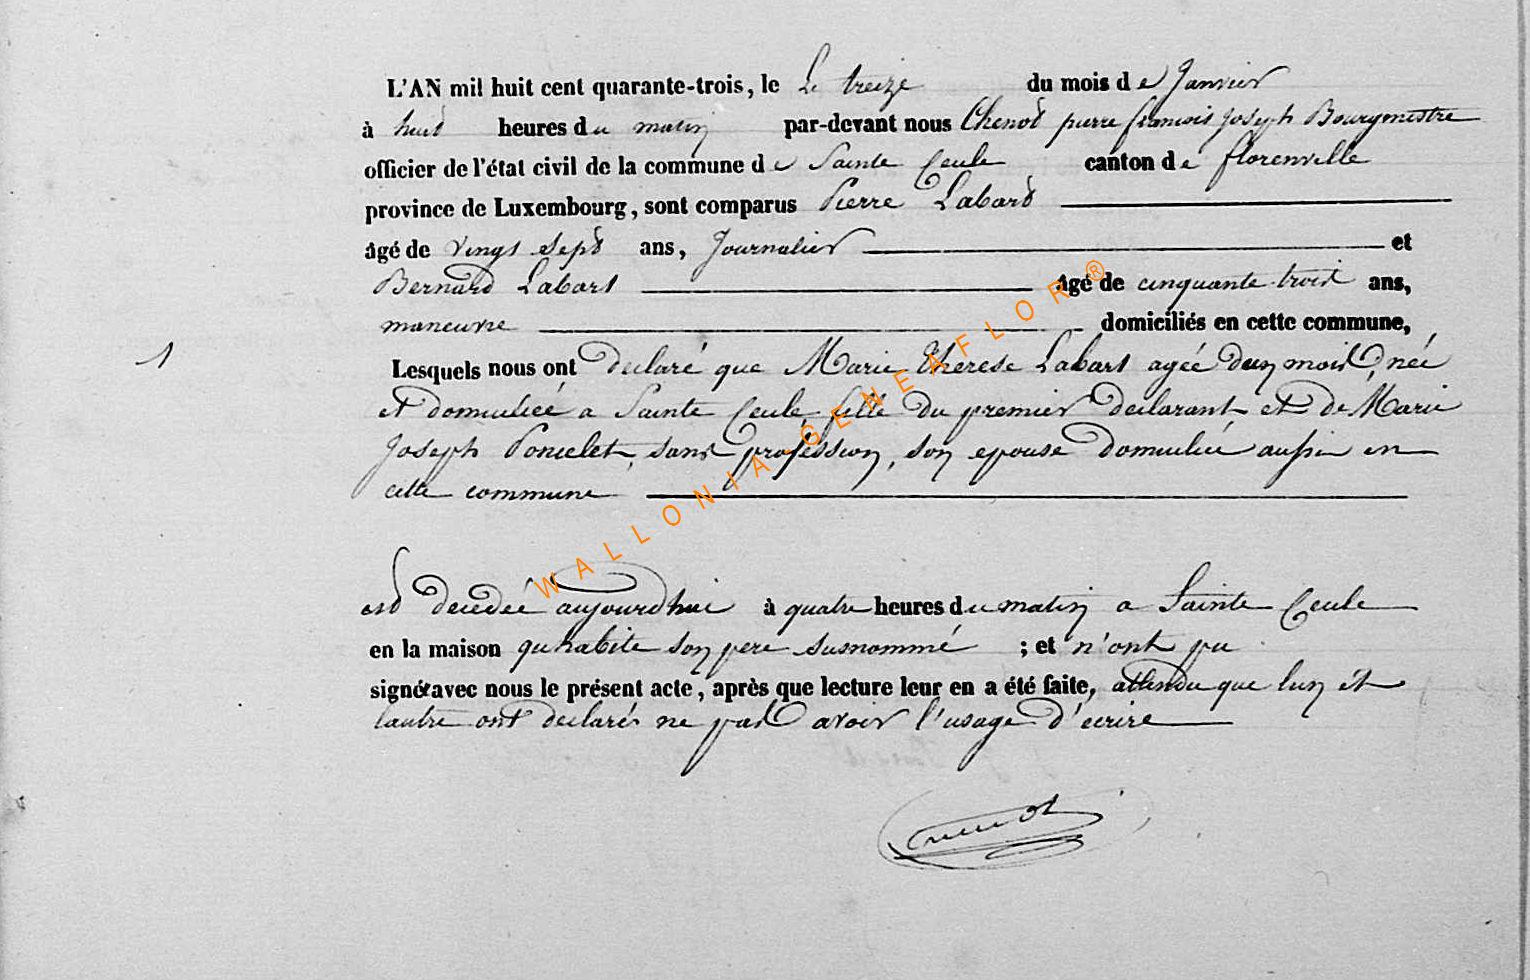 L'AN mil huit cent quarante-trois, le Le treize du mois de Janvier
à huit heures du matin par-devant nous Chenot pierre francois Joseph Bourgmestre
officier de l'état civil de la commune de Sainte Cecile canton de florenville
province de Luxembourg, sont comparus Pierre Labart
âgé de vingt sept ans, Journalier et
Bernard Labart âgé de cinquante trois ans,
maneuvre domiciliés en cette commune,
1
Lesquels nous ont declaré que Marie Therese Labart agée dun mois, née
et domiciliée a Sainte Cecile, fille du premier declarant et de Marie
Joseph Poncelet, sans proféssion, son epouse domiciliée aussi en
cette commune
est decedée aujourdhui à quatre heures du matin a Sainte Cecile
en la maison qu'habite son pere susnommé ; et n'ont pu
signér avec nous le présent acte, après que lecture leur en a été faite, attendu que lun et
lautre ont declarés ne pas avoir l'usage d'écrire
Chenot
WALLONIA-GENEAFLOR®